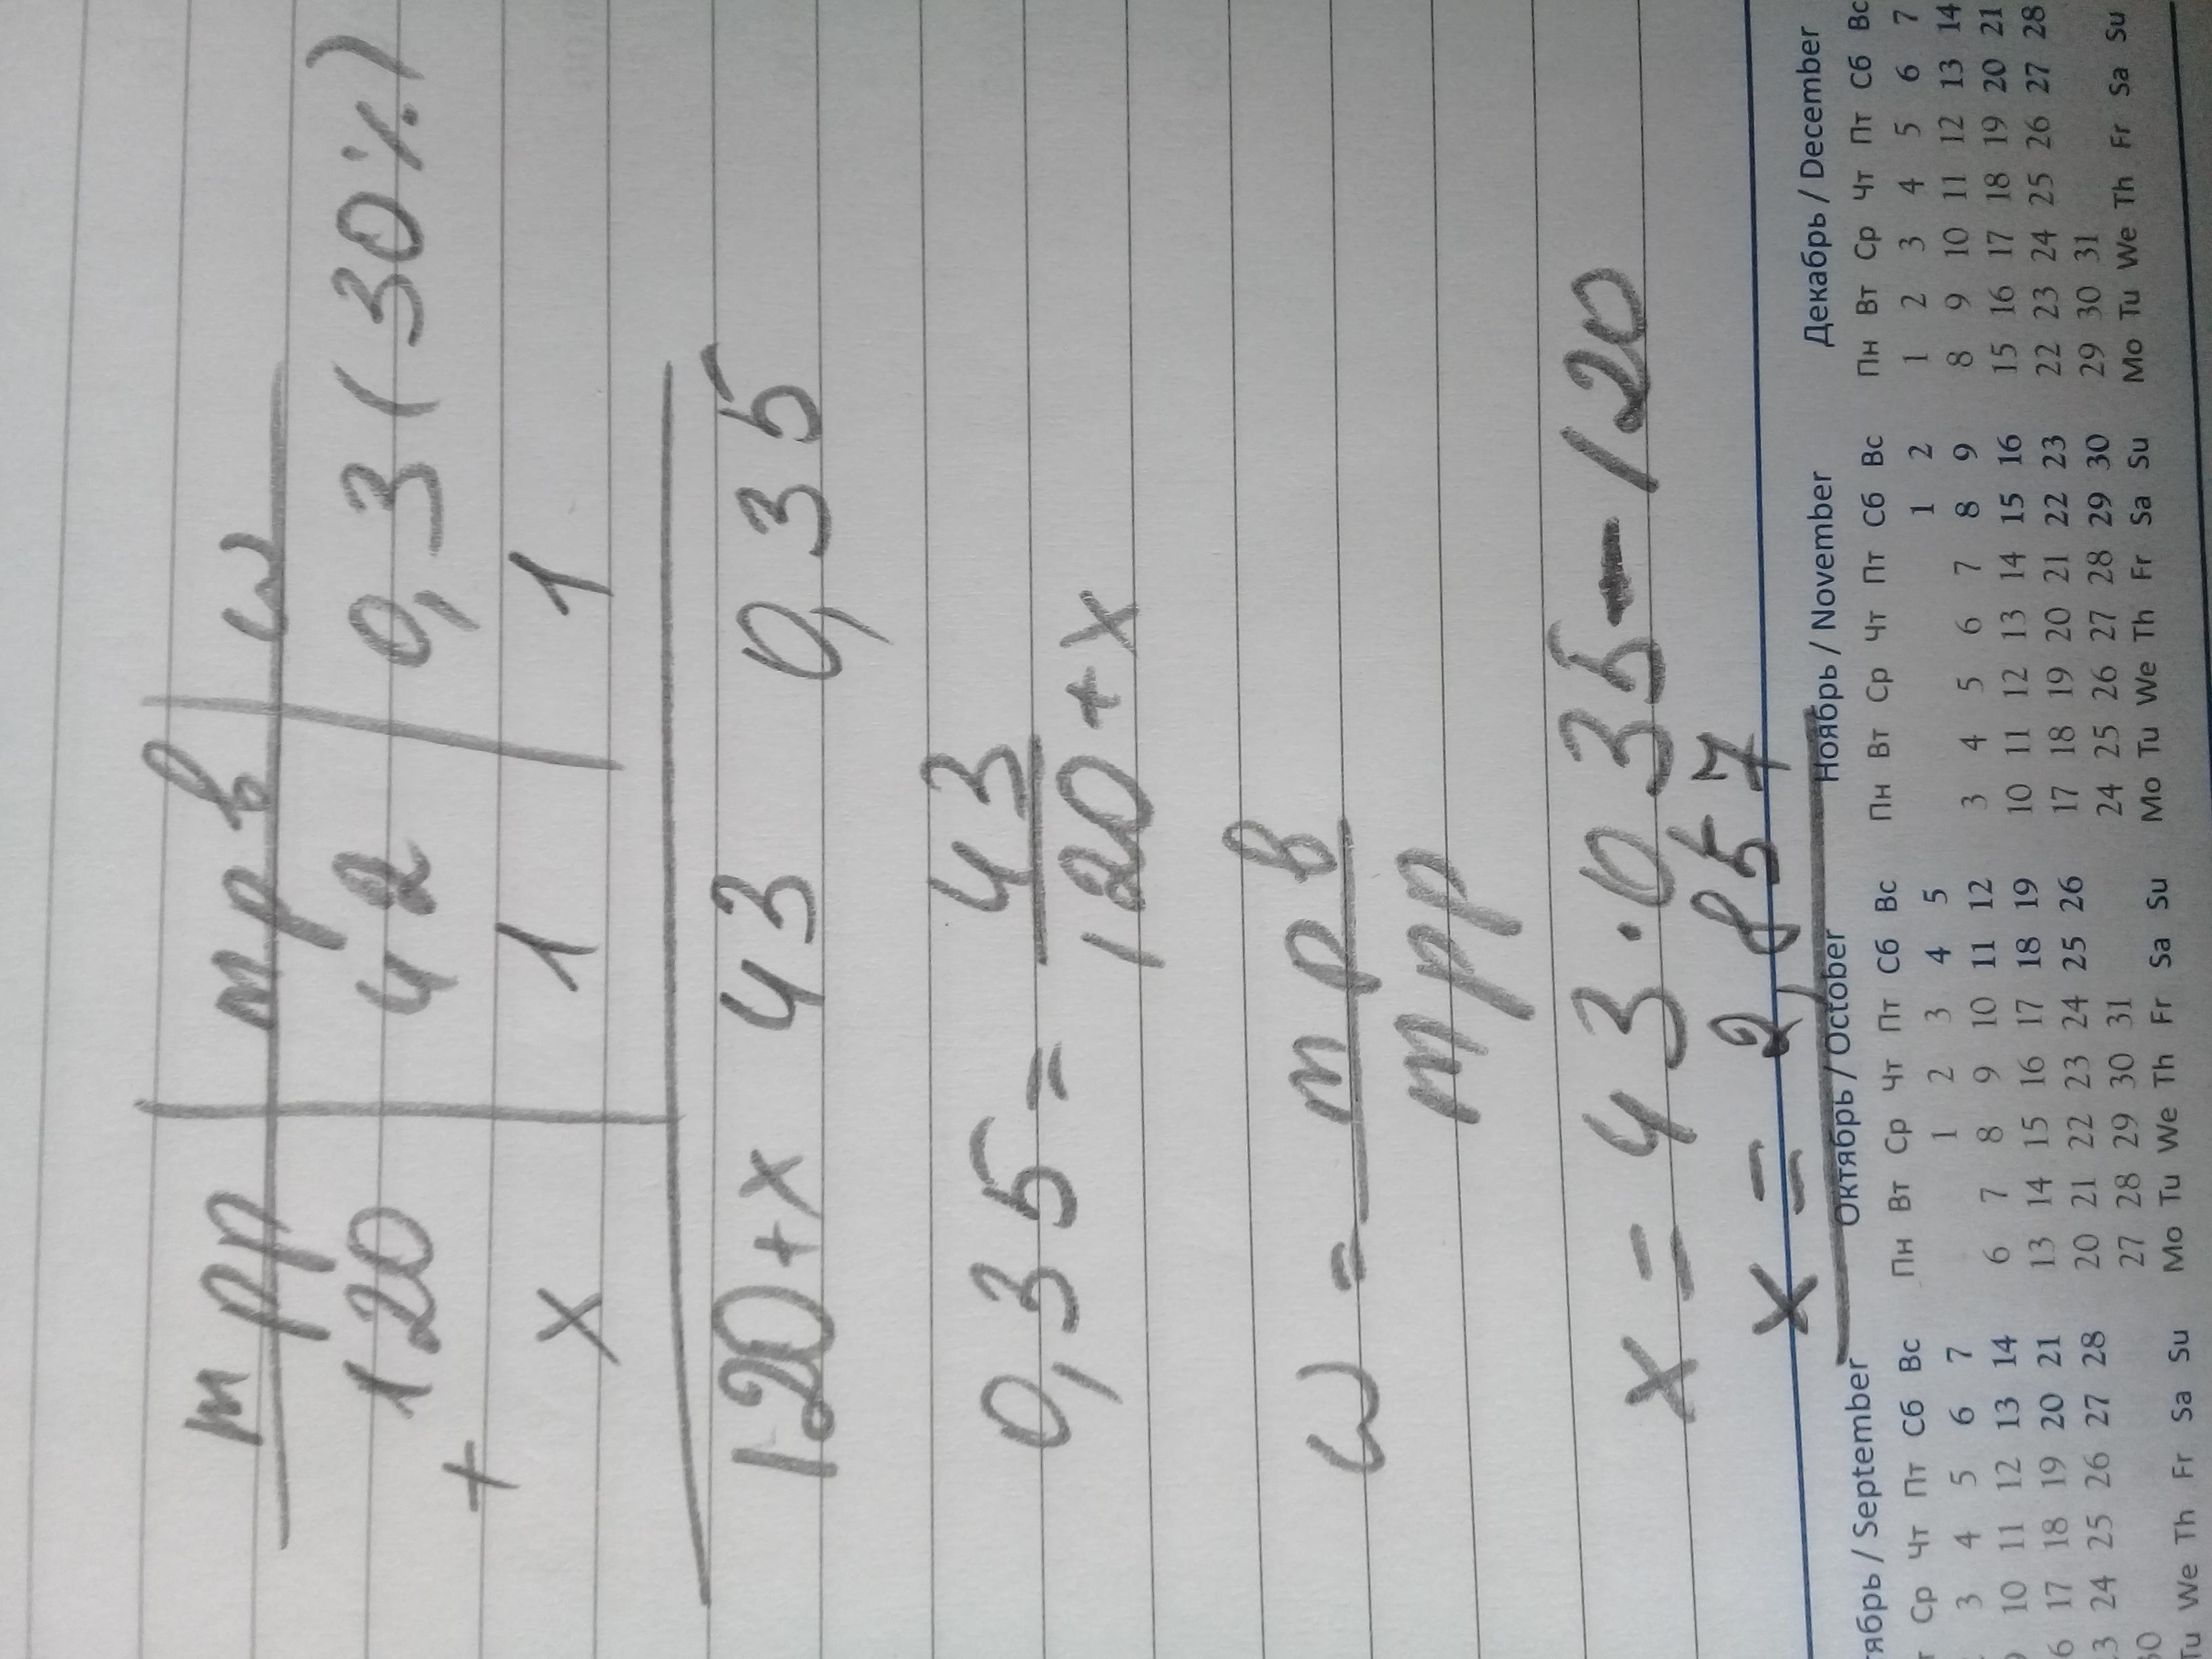 m рр m р в ω
120 42 0,3 (30%)
+
x 1 1
120+x 43 0,35
0,35 = 43
120 + x
ω = m р в
m рр
x = 43 · 0 35 - 120
x = 2,857
тябрь / September Октябрь / October Ноябрь / November Декабрь / December
Ср Чт Пт Сб Вс Пн Вт Ср Чт Пт Сб Вс Пн Вт Ср Чт Пт Сб Вс Пн Вт Ср Чт Пт Сб Вс
3 4 5 6 7 1 2 3 4 5 1 2 1 2 3 4 5 6 7
10 11 12 13 14 6 7 8 9 10 11 12 3 4 5 6 7 8 9 8 9 10 11 12 13 14
6 17 18 19 20 21 13 14 15 16 17 18 19 10 11 12 13 14 15 16 15 16 17 18 19 20 21
3 24 25 26 27 28 20 21 22 23 24 25 26 17 18 19 20 21 22 23 22 23 24 25 26 27 28
30 27 28 29 30 31 24 25 26 27 28 29 30 29 30 31
Tu We Th Fr Sa Su Mo Tu We Th Fr Sa Su Mo Tu We Th Fr Sa Su Mo Tu We Th Fr Sa Su